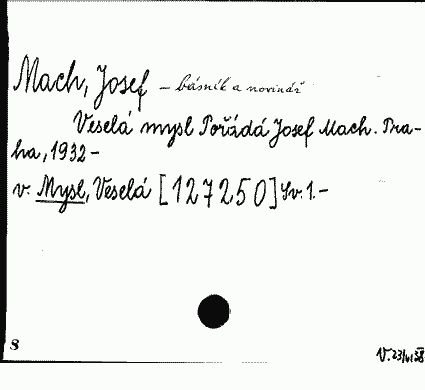 Mach, Josef – básník a novinář
Veselá mysl Pořádá Josef Mach. Pra-
ha, 1932 –
v. Mysl, Veselá [127250] Sv. 1. –
8